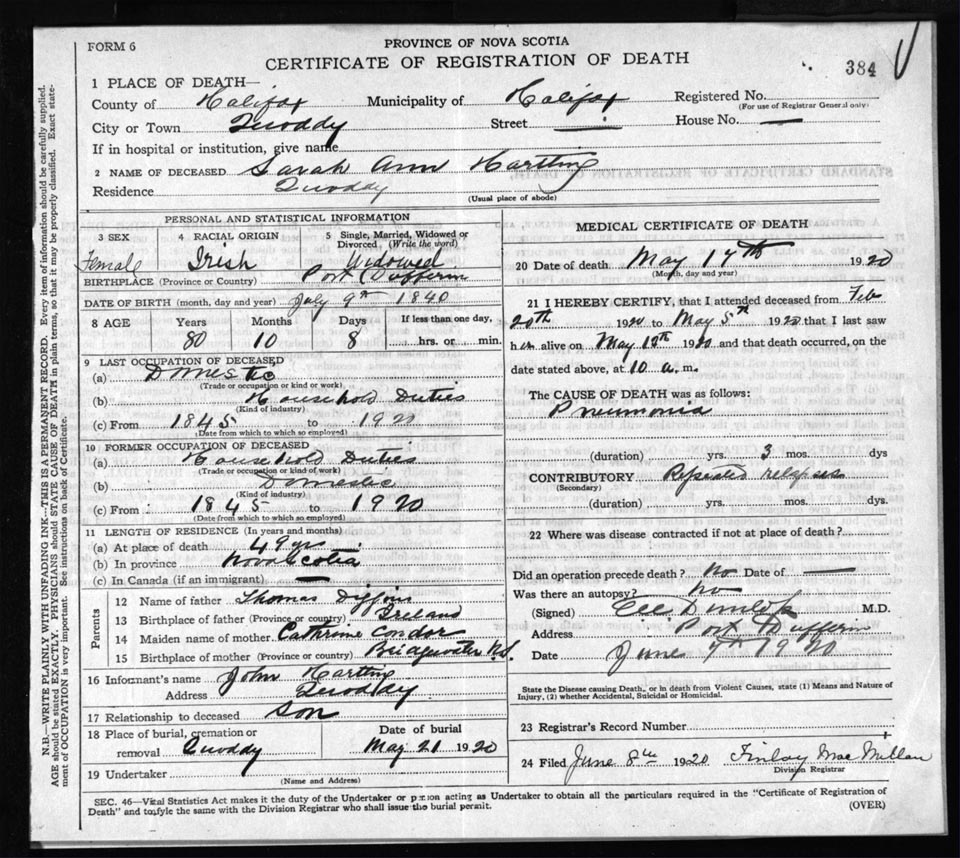 FORM 6
PROVINCE OF NOVA SCOTIA
CERTIFICATE OF REGISTRATION OF DEATH
384
1 PLACE OF DEATH—
County of Halifax Municipality of Halifax Registered No.
(For use of Registrar General only)
City or Town Quoddy Street — House No. —
If in hospital or institution, give name
2 NAME OF DECEASED Sarah Ann Hartling
Residence Quoddy
(Usual place of abode)
PERSONAL AND STATISTICAL INFORMATION
3 SEX 4 RACIAL ORIGIN 5 Single, Married, Widowed or Divorced (Write the word)
Female Irish Widowed
BIRTHPLACE (Province or Country) Port Dufferin
DATE OF BIRTH (month, day and year) July 9th 1840
8 AGE Years Months Days If less than one day,
80 10 8 hrs. or min.
9 LAST OCCUPATION OF DECEASED
(a) Domestic
(Trade or occupation or kind or work)
(b) Household Duties
(Kind of industry)
(c) From 1845 to 1920
(Date from which to which so employed)
10 FORMER OCCUPATION OF DECEASED
(a) Household Duties
(Trade or occupation or kind of work)
(b) Domestic
(Kind of industry)
(c) From 1845 to 1920
(Date from which to which so employed)
11 LENGTH OF RESIDENCE (In years and months)
(a) At place of death 49 yrs
(b) In province Nova Scotia
(c) In Canada (if an immigrant) —
Parents
12 Name of father Thomas
13 Birthplace of father (Province or country) Ireland
14 Maiden name of mother Cathrine Condor
15 Birthplace of mother (Province or country) Bridgewater N.S.
16 Informant's name John Hartling
Address Quoddy
17 Relationship to deceased Son
18 Place of burial, cremation or removal Quoddy
Date of burial
May 21 1920
19 Undertaker
(Name and Address)
MEDICAL CERTIFICATE OF DEATH
20 Date of death May 17th 1920
(Month, day and year)
21 I HEREBY CERTIFY, that I attended deceased from Feb
20th 1920 to May 5th 1920 that I last saw
her alive on May 12th 1920 and that death occurred, on the
date stated above, at 10 a. m.
The CAUSE OF DEATH was as follows:
Pneumonia
(duration) yrs. 3 mos. dys
CONTRIBUTORY Repeated relapses
(Secondary)
(duration) yrs. mos. dys.
22 Where was disease contracted if not at place of death?
Did an operation precede death? No Date of —
Was there an autopsy? No
(Signed) Dunlop M.D.
Address Port Dufferin
Date June 7th 1920
State the Disease causing Death, or in death from Violent Causes, state (1) Means and Nature of
Injury, (2) whether Accidental, Suicidal or Homicidal.
23 Registrar's Record Number
24 Filed June 8th 1920 Finlay MacMillan
Division Registrar
SEC. 46—Vital Statistics Act makes it the duty of the Undertaker or person acting as Undertaker to obtain all the particulars required in the "Certificate of Registration of
Death" and to fyle the same with the Division Registrar who shall issue the burial permit.
(OVER)
N.B.—WRITE PLAINLY WITH UNFADING INK—THIS IS A PERMANENT RECORD. Every item of information should be carefully supplied.
AGE should be stated EXACTLY. PHYSICIANS should STATE CAUSE OF DEATH in plain terms, so that it may be properly classified. Exact statement of OCCUPATION is very important. See instructions on back of Certificate.